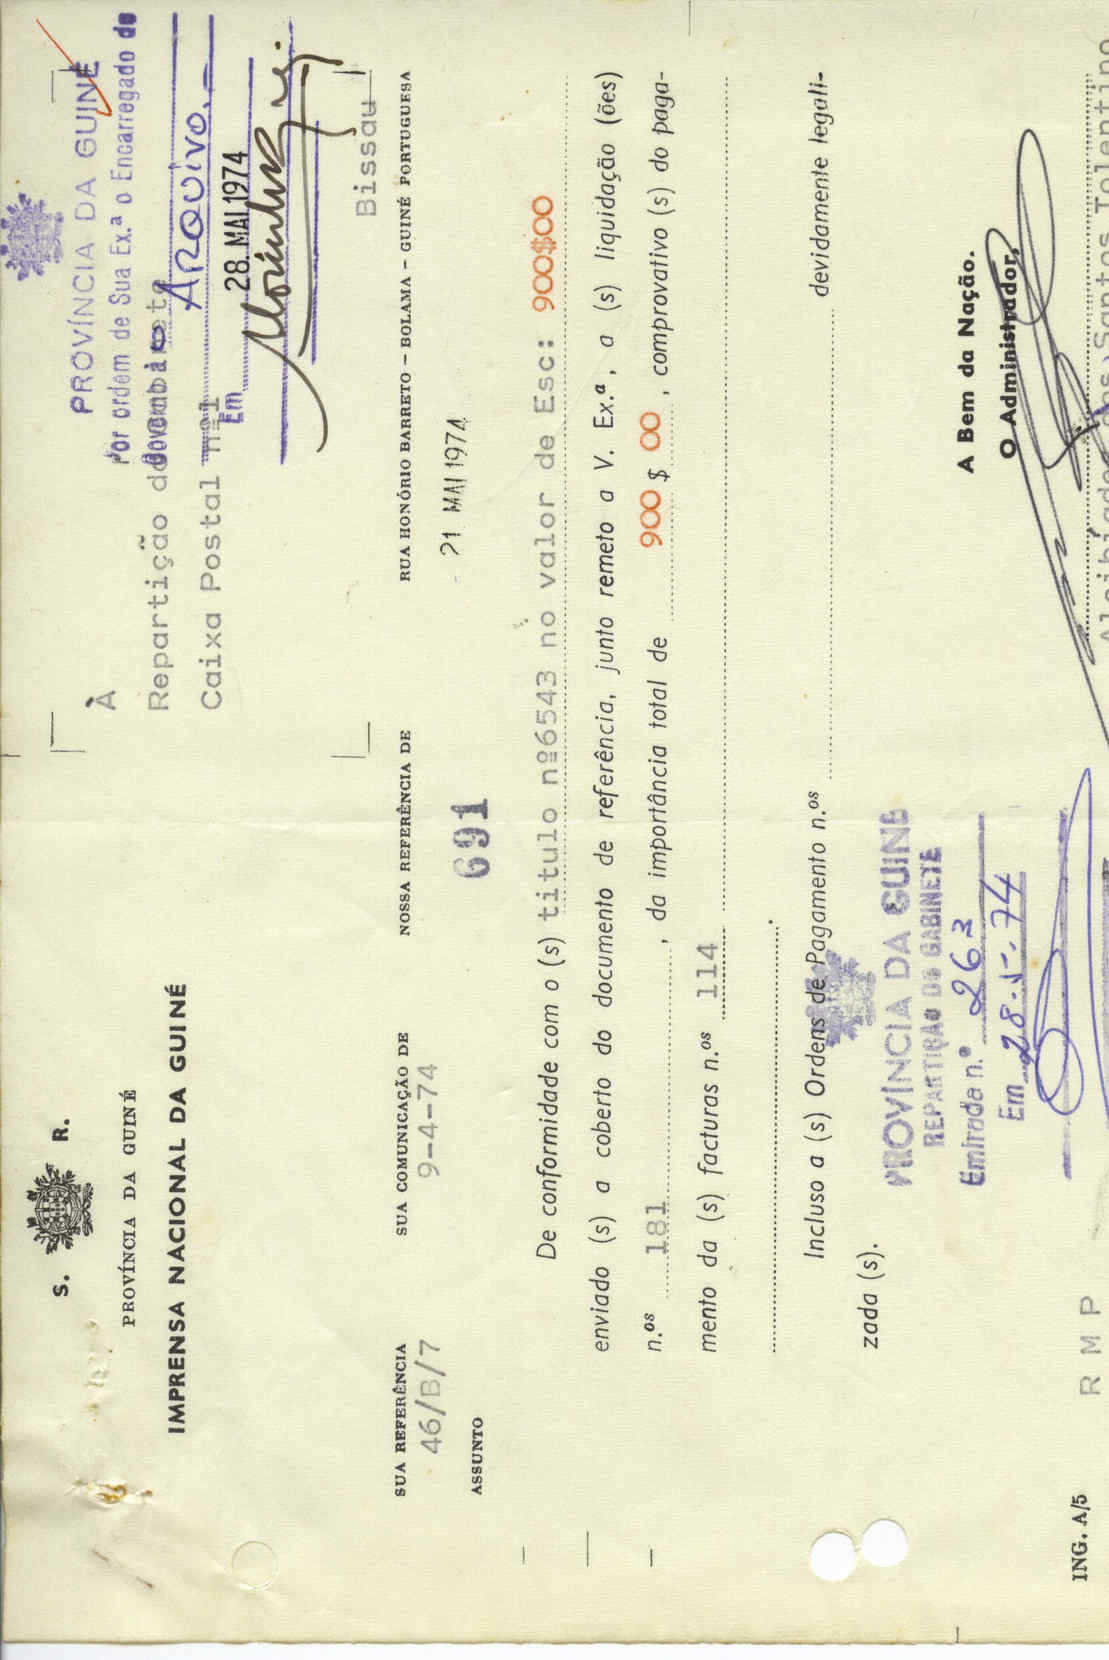 S. R.
PROVÍNCIA DA GUINÉ
IMPRENSA NACIONAL DA GUINÉ
PROVÍNCIA DA GUINÉ
Por ordem de Sua Ex.ª o Encarregado do
Governo
Arquivo.
Em 28. MAI 1974
À
Repartição do Gabinete
Caixa Postal nº1
Bissau
SUA REFERÊNCIA
46/B/7
SUA COMUNICAÇÃO DE
9-4-74
NOSSA REFERÊNCIA DE
691
RUA HONÓRIO BARRETO – BOLAMA – GUINÉ PORTUGUESA
21 MAI 1974
ASSUNTO
De conformidade com o (s) titulo nº6543 no valor de Esc: 900$00
enviado (s) a coberto do documento de referência, junto remeto a V. Ex.ª, a (s) liquidação (ões)
n.ºs 181, da importância total de 900 $ 00, comprovativo (s) do paga-
mento da (s) facturas n.ºs 114
Incluso a (s) Ordens de Pagamento n.ºs devidamente legali-
zada (s).
PROVÍNCIA DA GUINÉ
REPARTIÇÃO DO GABINETE
Entrada n.º 263
Em 28-5-74
A Bem da Nação.
O Administrador,
Santos Tolentino
R M P
ING. A/5